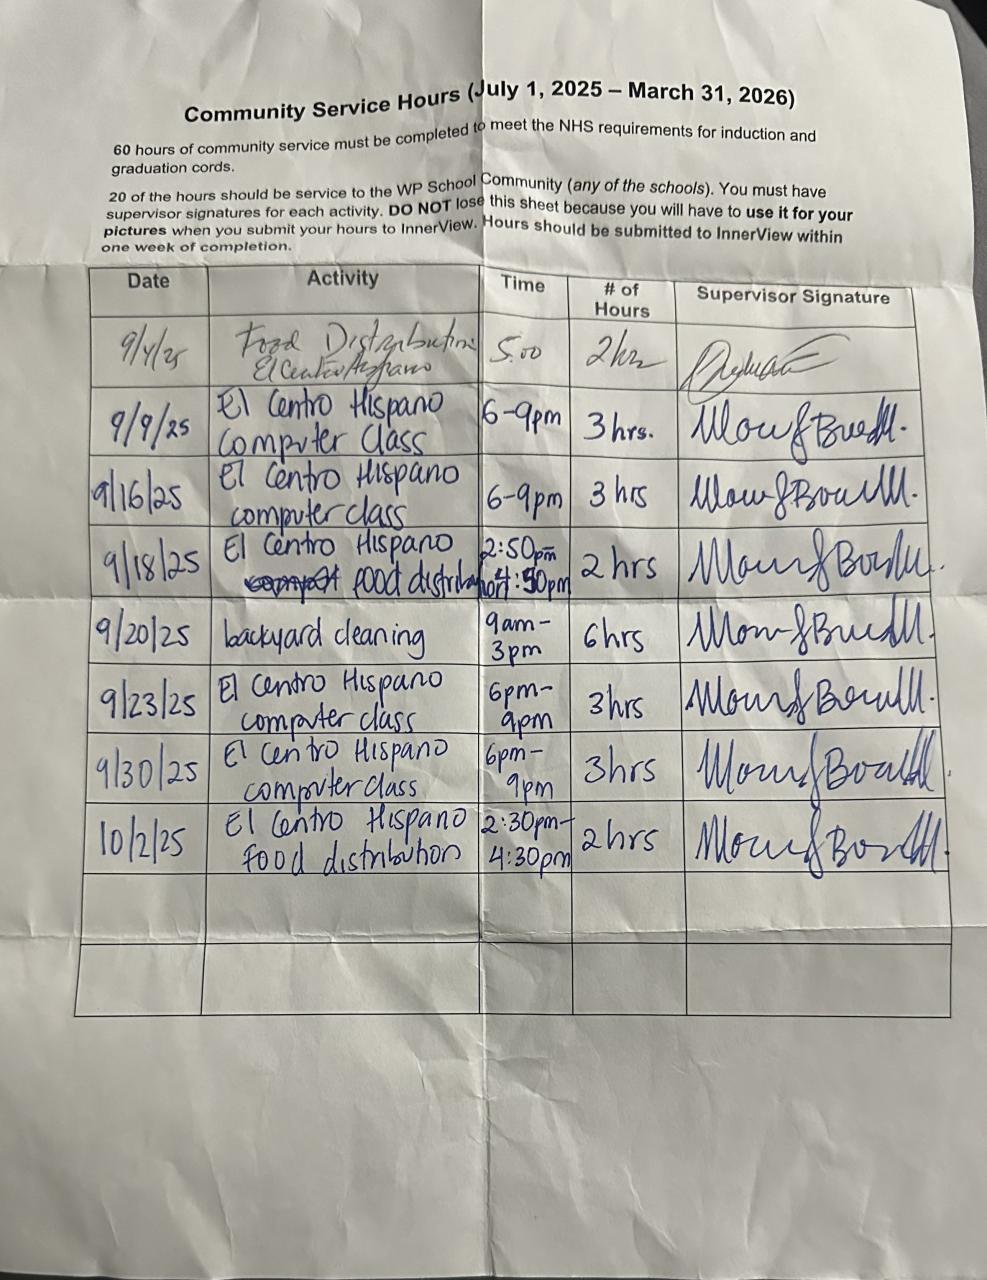 Community Service Hours (July 1, 2025 – March 31, 2026)
60 hours of community service must be completed to meet the NHS requirements for induction and
graduation cords.
20 of the hours should be service to the WP School Community (any of the schools). You must have
supervisor signatures for each activity. DO NOT lose this sheet because you will have to use it for your
pictures when you submit your hours to InnerView. Hours should be submitted to InnerView within
one week of completion.
Date Activity Time # of Hours Supervisor Signature
9/4/25 Food Distribution 5:00 2hrs
El Centro Hispano
9/9/25 El Centro Hispano 6-9pm 3 hrs.
Computer Class
9/16/25 El Centro Hispano 6-9pm 3 hrs
computer class
9/18/25 El Centro Hispano 2:50pm 2 hrs
food distribution 4:50pm
9/20/25 backyard cleaning 9am- 6hrs
3pm
9/23/25 El Centro Hispano 6pm- 3hrs
computer class 9pm
9/30/25 El Centro Hispano 6pm- 3hrs
computer class 9pm
10/2/25 El Centro Hispano 2:30pm- 2hrs
food distribution 4:30pm